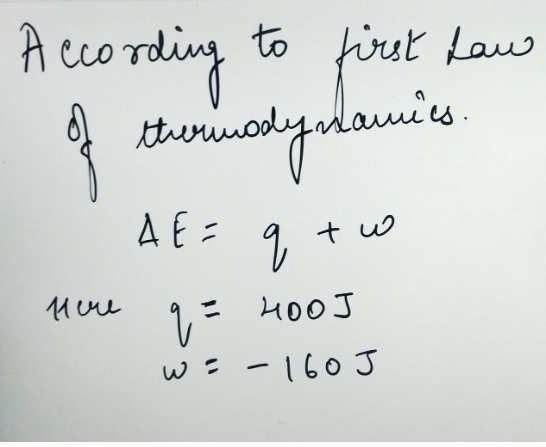 According to first Law
Of thermodynamics.
ΔE = q + w
Here q = 400J
w = -160J